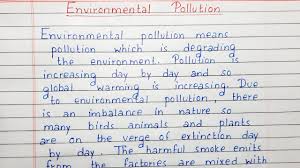 Environmental Pollution
Environmental pollution means
pollution which is degrading
the environment. Pollution is
increasing day by day and so
global warming is increasing. Due
to environmental pollution, there
is an imbalance in nature so
many birds animals and plants
are on the verge of extinction day
by day. The harmful smoke emits
from the factories are mixed with